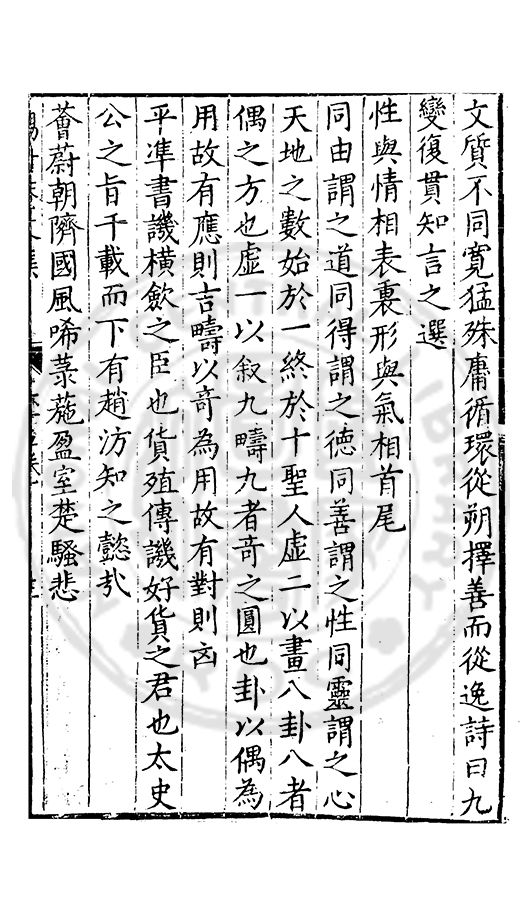 文質不同寛猛殊庸循環從朔擇善而從逸詩曰九
變復貫知言之選
性與情相表裏形與氣相首尾
同由謂之道同得謂之德同善謂之性同靈謂之心
天地之數始於一終於十聖人虛二以畫八卦八者
偶之方也虛一以叙九疇九者竒之圓也卦以偶為
用故有應則吉疇以竒為用故有對則凶
平準書譏横歛之臣也貨殖傳譏好貨之君也太史
公之旨千載而下有趙汸知之懿㢤
薈蔚朝隮國風唏菉葹盈室楚騷悲